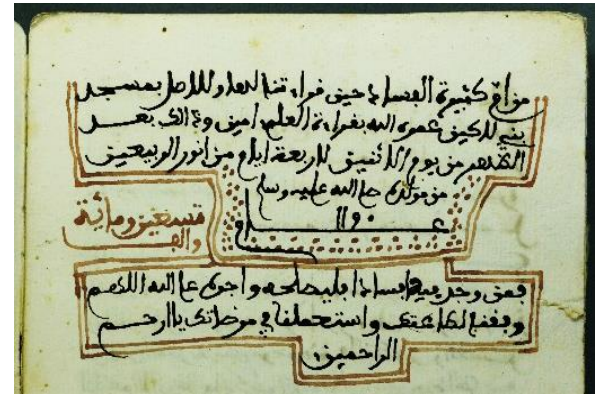 كثيرة الفساد حين قراءتنا بمسجد
بني عمره الله بقراءة العلم امين وذالك بعد
الظهر من يوم الاثنين لاربعة ايام من انور الربيعين
من مولده صلى الله عليه وسلم
عــــام ١١٩٠
تسعين ومائة
والف
فمن وجد فيه افسادا فليصلحه واجره على الله اللهم
وفقنا لطاعتك واستعملنا في مرضاتك يا ارحم
الراحمين